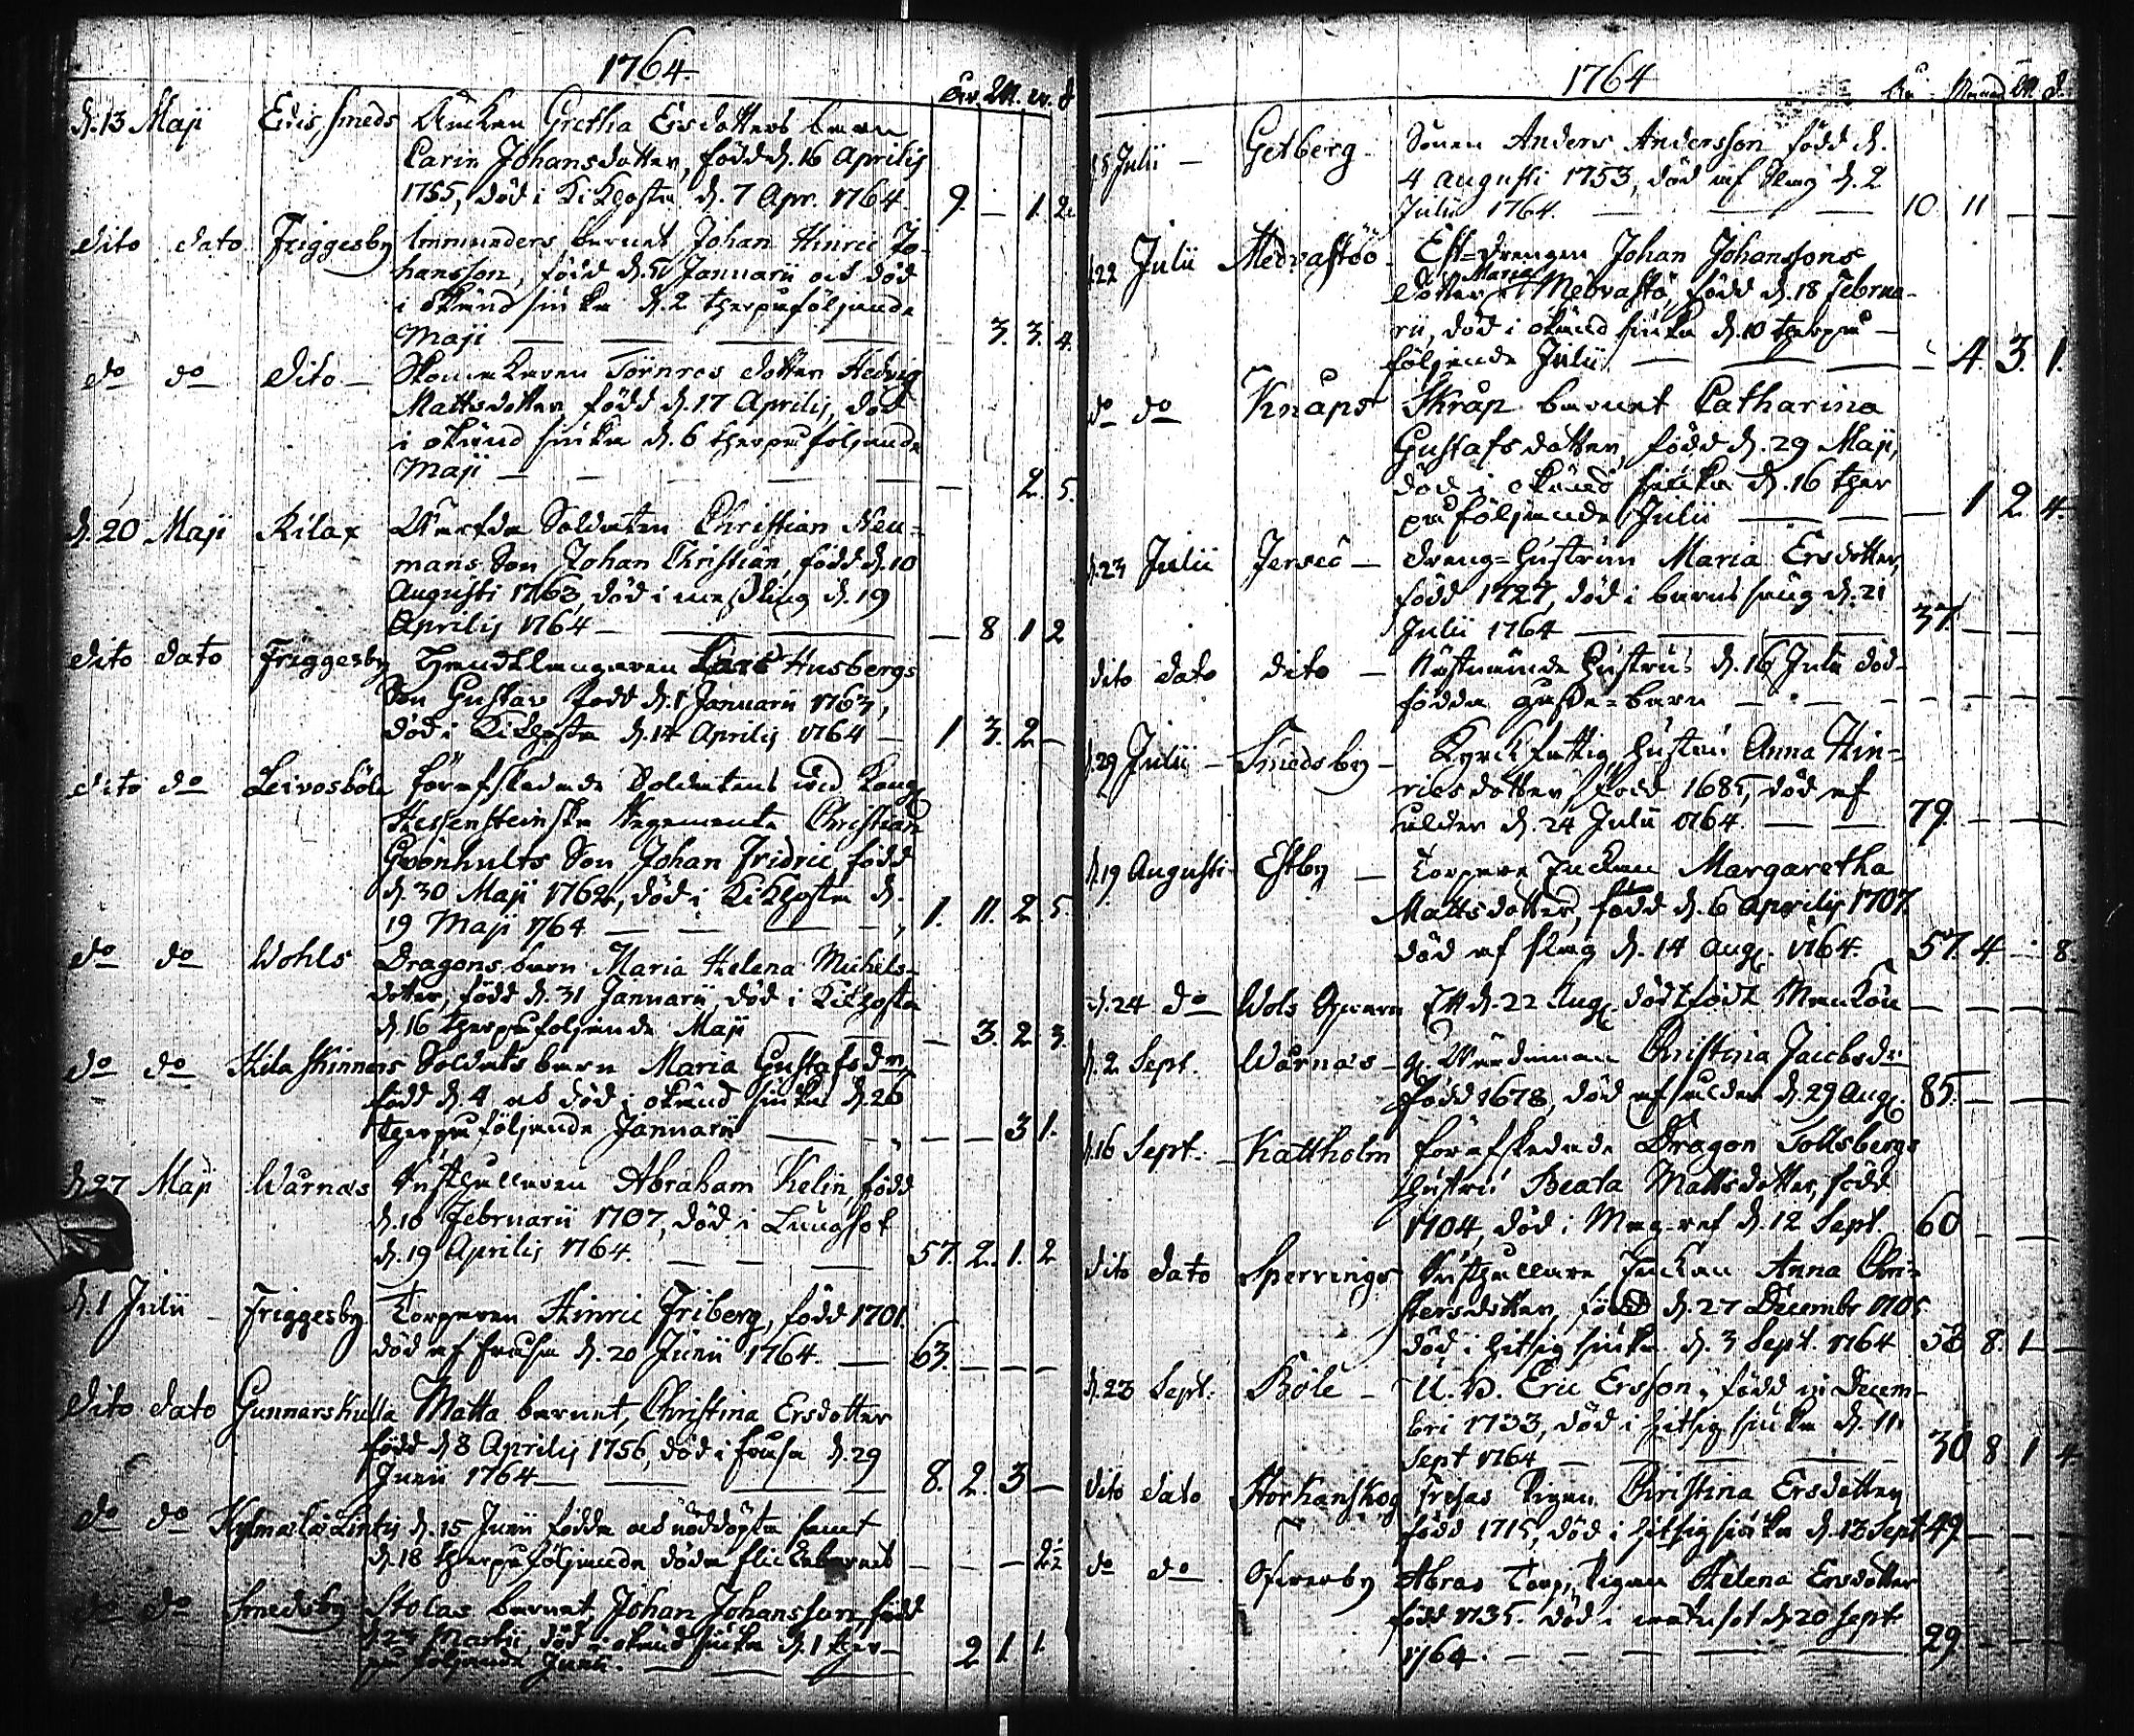 1764.
År. M. w. d
d. 13 Maji Eris, smeds Änckan Gretha Ersdotters barn
Carin Johansdotter, född d. 16 Aprilis
1755, död i Kikhosta d. 7 Apr. 1764. 9. — 1. 2.
dito dato Friggesby barnet Johan Hinric Jo-
hansson, född d. 5 Januarii och död
i okänd siuka d. 2 therpåföljande
Maji — 3. 3. 4.
do do dito — Skomakaren Törnros dotter Hedvig
Mattsdotter, född d. 17 Aprilis, död
i okänd siuka d. 6 therpåföljande
Maji — — 2. 5.
d. 20 Maji Kilax Soldaten Christian Neu-
mans Son Johan Christian, född d. 10
Augusti 1763, död i mässling d. 19
Aprilis 1764 — — 8 1 2
dito dato Friggesby Handtlangaren Husbergs
Son Gustav född d. 1 Januarii 1763,
död i Kikhosta d. 14 Aprilis 1764 — 1 3. 2 —
dito do Leivosböle förafskedade Soldatens wid Kong.
Hessensteinska Regemente Christian
Grönhults Son Johan Fridric född
d. 30 Maji 1762, död i Kikhosta d.
19 Maji 1764 — 1. 11. 2. 5.
do do Wohls Dragons barn Maria Helena Michels-
dotter, född d. 31 Januarii, död i Kikhosta
d. 16 therpåföljande Maji — 3. 2 3.
do do Kila Skinnars Soldats barn Maria Gustafsdr,
född d. 4 och död i okänd siuka d. 26
therpåföljande Januarii — — — 3 1.
d. 27 Maji Wårnäs Inhysaren Abraham Kelin, född
d. 10 Februarii 1707, död i Lungsot
d. 19 Aprilis 1764. — 57. 2. 1. 2
d. 1 Julii — Friggesby Torparen Hinric Friberg, född 1701.
död af fråssa d. 20 Junii 1764. — 63. — — —
dito dato Gunnarskulla Matta barnet, Christina Ersdotter
född d 8 Aprilis 1756, död i frossa d. 29
Junii 1764 — 8. 2. 3 —
do do Lintis d. 15 Junii födda och nöddöpta samt
d. 18 therpåföljande döda flickebarnet — — — 2
do do Smedsby Stolas barnet, Johan Johansson, född
d. 23 Martii, död i okänd siuka d. 1 ther-
påföljande Junii. — 2 1 1.
1764
År Månad W. d.
15 Julii — Getberg — Sonen Anders Andersson född d.
4 augusti 1753, död af slag d. 2
Julii 1764. — 10. 11 — —
d. 22 Julii Medvastöö — Est-drengen Johan Johanssons
Dotter Maria i Medvastö, född d. 18 Februa-
rii, död i okänd siuka d. 10 therpå-
följande Julii — 4. 3. 1.
do do Knaps Skräp barnet Catharina
Gustafsdotter, född d. 29 Maji,
död i okänd siuka d. 16 ther
påföljande Julii — — 1 2. 4.
d. 23 Julii Jerseö — dreng-hustrun Maria Ersdotter,
född 1727, död i barnssäng d. 21
Julii 1764 — 37. — —
dito dato dito — Nästnämde hustrus d. 16 Julii död-
födda gosse-barn — — — —
d. 29 Julii — Smedsby — Kyrckfattig hustru Anna Hin-
ricsdotter, född 1685, död af
ålder d. 24 Julii 1764. — 79. — —
d. 19 Augusti Estby — Torpare Enckan Margaretha
Mattsdotter, född d. 6 aprilis 1707.
död af slag d. 14 Aug. 1764. 57. 4. — 8.
d. 24 do Wols Qwarn Ett d. 22 Aug. dödfödt Mankön — — — —
d. 2 Sept. Wårnäs — Christina Jacobsdr
född 1678, död af ålder d. 29 Aug. 85. — —
d. 16 Sept. — Kattholm förafskedade Dragon Sollsbergs
Hustru Beata Mattsdotter, född
1704, död i d. 12 Sept. 60 — —
dito dato Sperrings Enckan Anna Chri-
stersdotter, född d. 27 Decembr 1705
död i hitsig siuka d. 3 Sept. 1764 58 8. 1 —
d. 23 Sept. Böle — U. B. Eric Ersson, född in Decem-
bri 1733, död i hitsig siuka d. 11
Sept 1764 — 30 8 1 4
dito dato Storhanskog Pigan Christina Ersdotter
född 1715, död i hitsig siuka d. 13 Sept 49 — —
do do Öfwerby Abras Torp, Pigan Helena Ersdotter
född 1735. död i d. 20 Sept
1764. — 29. — —